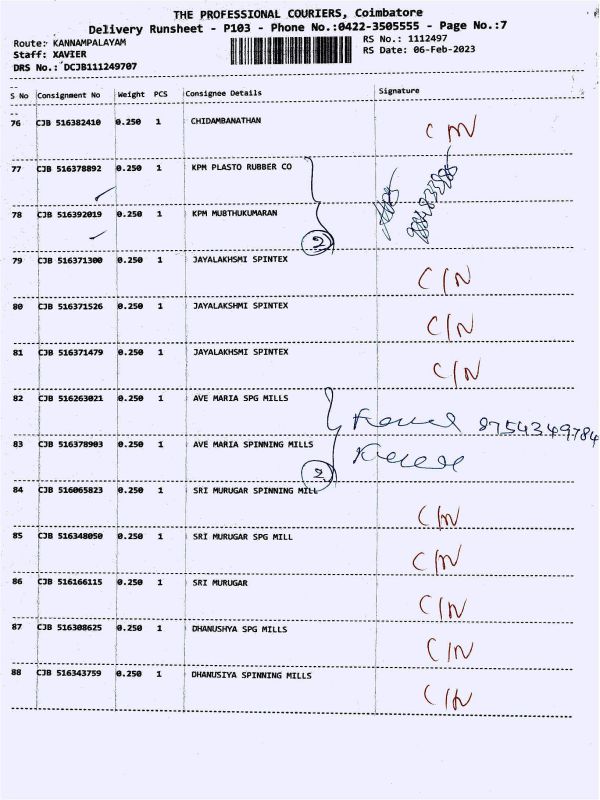 THE PROFESSIONAL COURIERS, Coimbatore
Delivery Runsheet - P103 - Phone No.:0422-3505555 - Page No.:7
Route: KANNAMPALAYAM RS No.: 1112497
Staff: XAVIER RS Date: 06-Feb-2023
DRS No.: DCJB111249707
S No Consignment No Weight PCS Consignee Details Signature
76 CJB 516382410 0.250 1 CHIDAMBANATHAN C/N
77 CJB 516378892 0.250 1 KPM PLASTO RUBBER CO
78 CJB 516392019 0.250 1 KPM MUBTHUKUMARAN
2
79 CJB 516371300 0.250 1 JAYALAKHSMI SPINTEX C/N
80 CJB 516371526 0.250 1 JAYALAKSHMI SPINTEX C/N
81 CJB 516371479 0.250 1 JAYALAKHSMI SPINTEX C/N
82 CJB 516263021 0.250 1 AVE MARIA SPG MILLS 8754349784
83 CJB 516378903 0.250 1 AVE MARIA SPINNING MILLS
2
84 CJB 516065823 0.250 1 SRI MURUGAR SPINNING MILL C/N
85 CJB 516348050 0.250 1 SRI MURUGAR SPG MILL C/N
86 CJB 516166115 0.250 1 SRI MURUGAR C/N
87 CJB 516308625 0.250 1 DHANUSHYA SPG MILLS C/N
88 CJB 516343759 0.250 1 DHANUSIYA SPINNING MILLS C/N